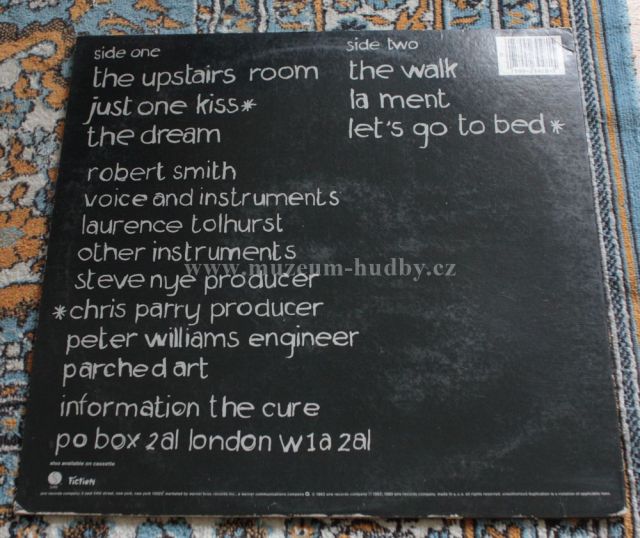 side one
the upstairs room
just one kiss*
the dream
side two
the walk
la ment
let's go to bed*
robert smith
voice and instruments
laurence tolhurst
other instruments
steve nye producer
*chris parry producer
peter williams engineer
parched art
information the cure
po box 2al london w1a 2al
www.muzeum-hudby.cz
also available on cassette
fiction